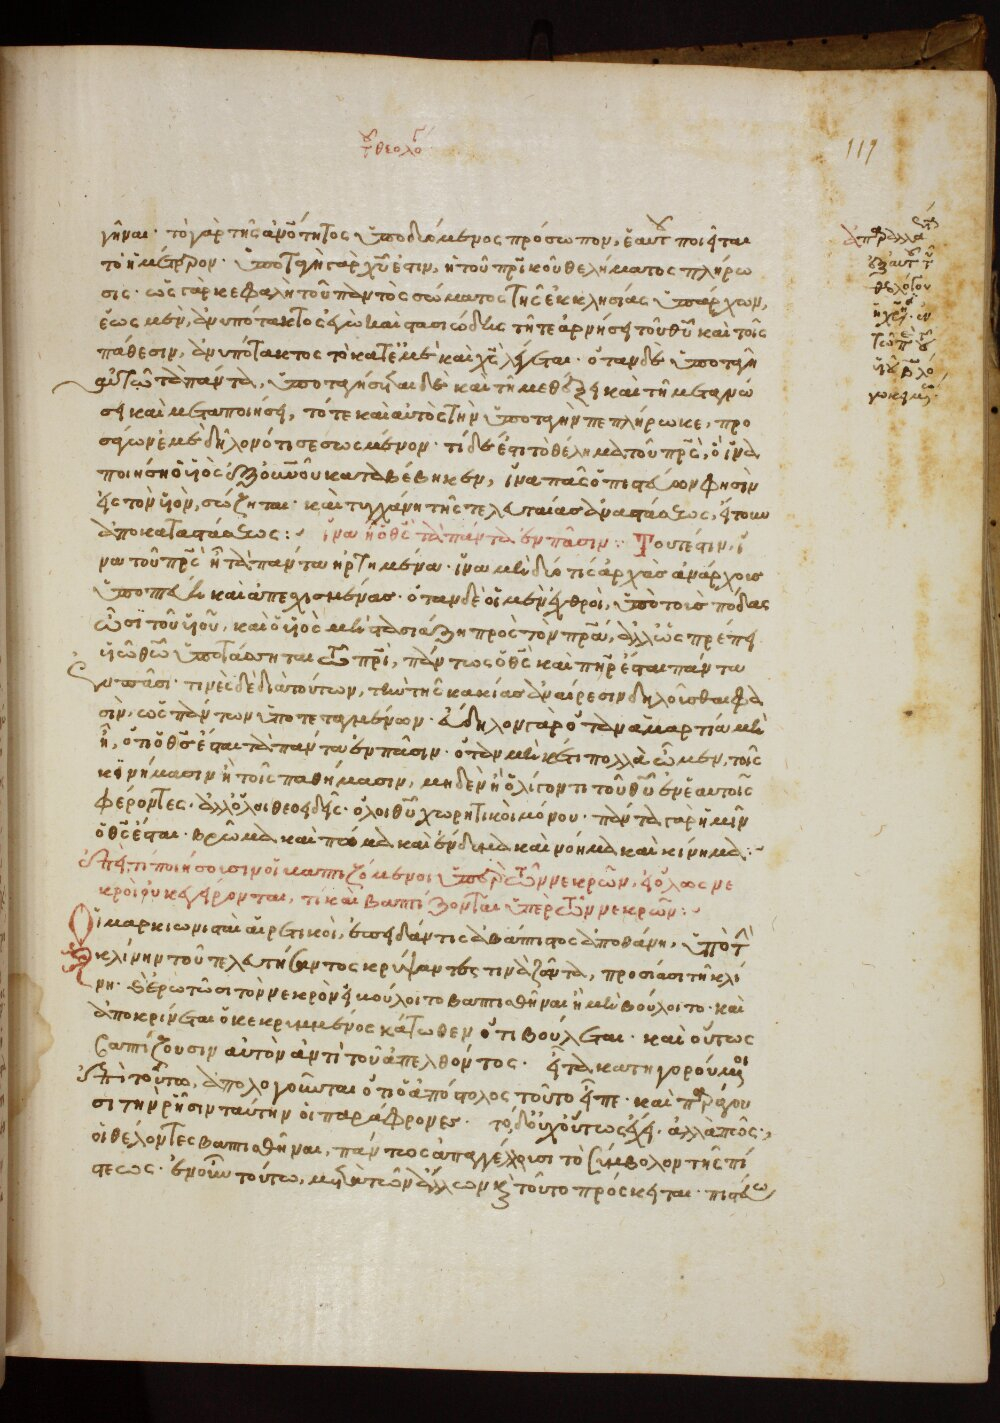 τοῦ θεολόγ
119
γῆναι· τὸ γὰρ τῆς ἀνθρωπότητος ὑποδυόμενος πρόσωπον, ἑαυτοῦ ποιεῖται
τὸ ἡμέτερον· ὑποταγὴ γὰρ χῦ ἐστιν, ἡ τοῦ πρικοῦ θελήματος πλήρω
σις· ὡς γὰρ κεφαλὴ τοῦ παντὸς σώματος τῆς ἐκκλησίας ὑπάρχων,
ἕως μὲν, ἀνυπότακτος ἐγὼ καὶ στασιώδης τῆ τε ἀρνήσει τοῦ θῦ καὶ τοῖς
πάθεσιν, ἀνυπότακτος τὸ κατ' ἐμὲ καὶ χς λέγεται· ὅταν δὲ ὑποταγῆ
αὐτῶ τὰ πάντα, ὑποταγήσεται δὲ καὶ τῆ μεθέξει καὶ τῆ μεταγνώ
σει καὶ μεταποιήσει, τότε καὶ αὐτὸς τὴν ὑποταγὴν πεπλήρωκε, προ
σάγων ἐμὲ δηλονότι σεσωσμένον· τί δέ ἐστι τὸ θέλημα τοῦ πρς, ὃ ἵνα
ποιήση ὁ υἱὸς ἐξ οὐνοῦ καταβέβηκεν, ἵνα πᾶς ὁ πιστεύων φησὶν
εἰς τὸν υἱὸν, σώζηται· καὶ τυγχάνη τῆς τελευταίας ἀναστάσεως, ἤτοι
ἀποκαταστάσεως:· ἵνα ἦ ὁ θς τὰ πάντα ἐν πᾶσιν:· Τουτέστιν, ἵ
να τοῦ πρς ἦ τὰ πάντα ἠρτημένα· ἵνα μὴ δύο τις ἀρχὰς ἀνάρχους
ὑποπτεύη καὶ ἀπεσχισμένας· ὅταν δὲ οἱ μὲν ἐχθροὶ, ὑπὸ τοὺς πόδας
ὦσι τοῦ υἱοῦ, καὶ ὁ υἱὸς μὴ στασιάζη πρὸς τὸν πρα, ἀλλ' ὡς πρέπει
υἱῶ θεῶ ὑποτάσσηται τῶ πρὶ, πάντως ὁ θς καὶ πηρ ἔσται πάντα
ἐν πᾶσι· τινὲς δὲ διὰ τούτων, τὴν τῆς κακίας ἀναίρεσιν δηλοῦσθαι φα
σὶν, ὡς πάντων ὑποτεταγμένων· εὔδηλον γὰρ ὅταν ἁμαρτία μὴ
ἦ, ὅτι ὁ θς ἔσται τὰ πάντα ἐν πᾶσιν· ὅταν μηκέτι πολλὰ ὦμεν, τοῖς
κινήμασιν ἢ τοῖς παθήμασιν, μηδὲν ἢ ὀλίγον τι τοῦ θῦ ἐν ἑαυτοῖς
φέροντες· ἀλλ' ὅλοι θεοειδεῖς· ὅλου θῦ χωρητικοὶ μόνου· πάντα γὰρ ἡμῖν
ὁ θς ἔσται· βρῶμα καὶ πόμα καὶ ἔνδυμα καὶ νόημα καὶ κίνημα:~
ἐπεὶ τί ποιήσουσιν οἱ βαπτιζόμενοι ὑπὲρ τῶν νεκρῶν, εἰ ὅλως νε
κροὶ οὐκ ἐγείρονται, τί καὶ βαπτίζονται ὑπὲρ τῶν νεκρῶν:~
Οἱ μαρκιωνισταὶ αἱρετικοὶ, ἐπειδάν τις ἀβάπτιστος ἀποθάνη, ὑπὸ τὴν
κλίνην τοῦ τελευτήσαντος κρύψαντές τινα ζῶντα, προσίασι τῆ κλί
νη· καὶ ἐρωτῶσι τὸν νεκρὸν εἰ βούλοιτο βαπτισθῆναι ἢ μὴ βούλοιτο· καὶ
ἀποκρίνεται ὁ κεκρυμμένος κάτωθεν ὅτι βούλεται· καὶ οὕτως
βαπτίζουσιν αὐτὸν ἀντὶ τοῦ ἀπελθόντος· εἶτα κατηγορούμενοι
ἐπὶ τούτω, ἀπολογοῦνται ὅτι ὁ ἀπόστολος τοῦτο εἶπε· καὶ παράγου
σι τὴν ῥῆσιν ταύτην οἱ παράφρονες· τὸ δ' οὐχ οὕτως ἔχει· ἀλλὰ πῶς·,
οἱ θέλοντες βαπτισθῆναι, πάντως ἀπαγγέλλουσι τὸ σύμβολον τῆς πί
στεως· ἐν οὖν τούτω, μετὰ τῶν ἄλλων καὶ τοῦτο πρόσκειται· πιστεύω